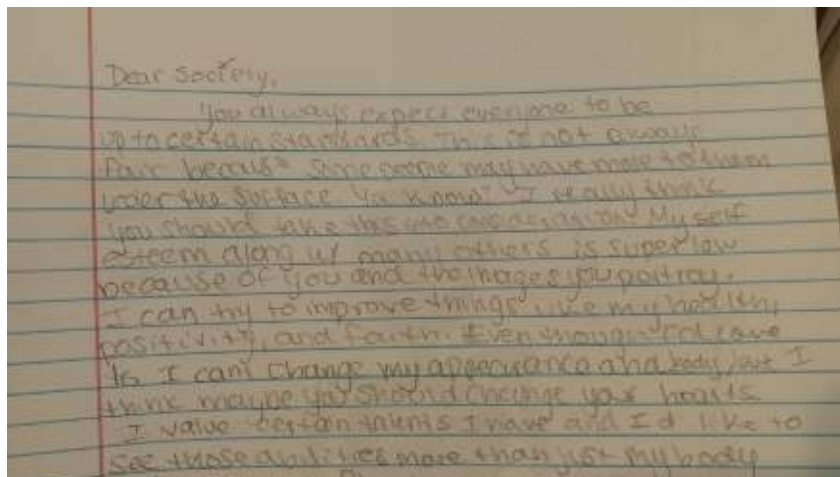 Dear Society,
You always expect everyone to be
up to certain standards. This is not always
Fair because some people may have more to them
under the surface Ya Know? I really think
you should take this into consideration My self
esteem along w/ many others is super low
because of you and the images you portray.
I can try to improve things like my health,
positivity, and faith. Even though I'd love
to I can't change my appearance and body, but I
think maybe you should change your hearts
I value certain talents I have and I'd like to
see those abilities more than just my body